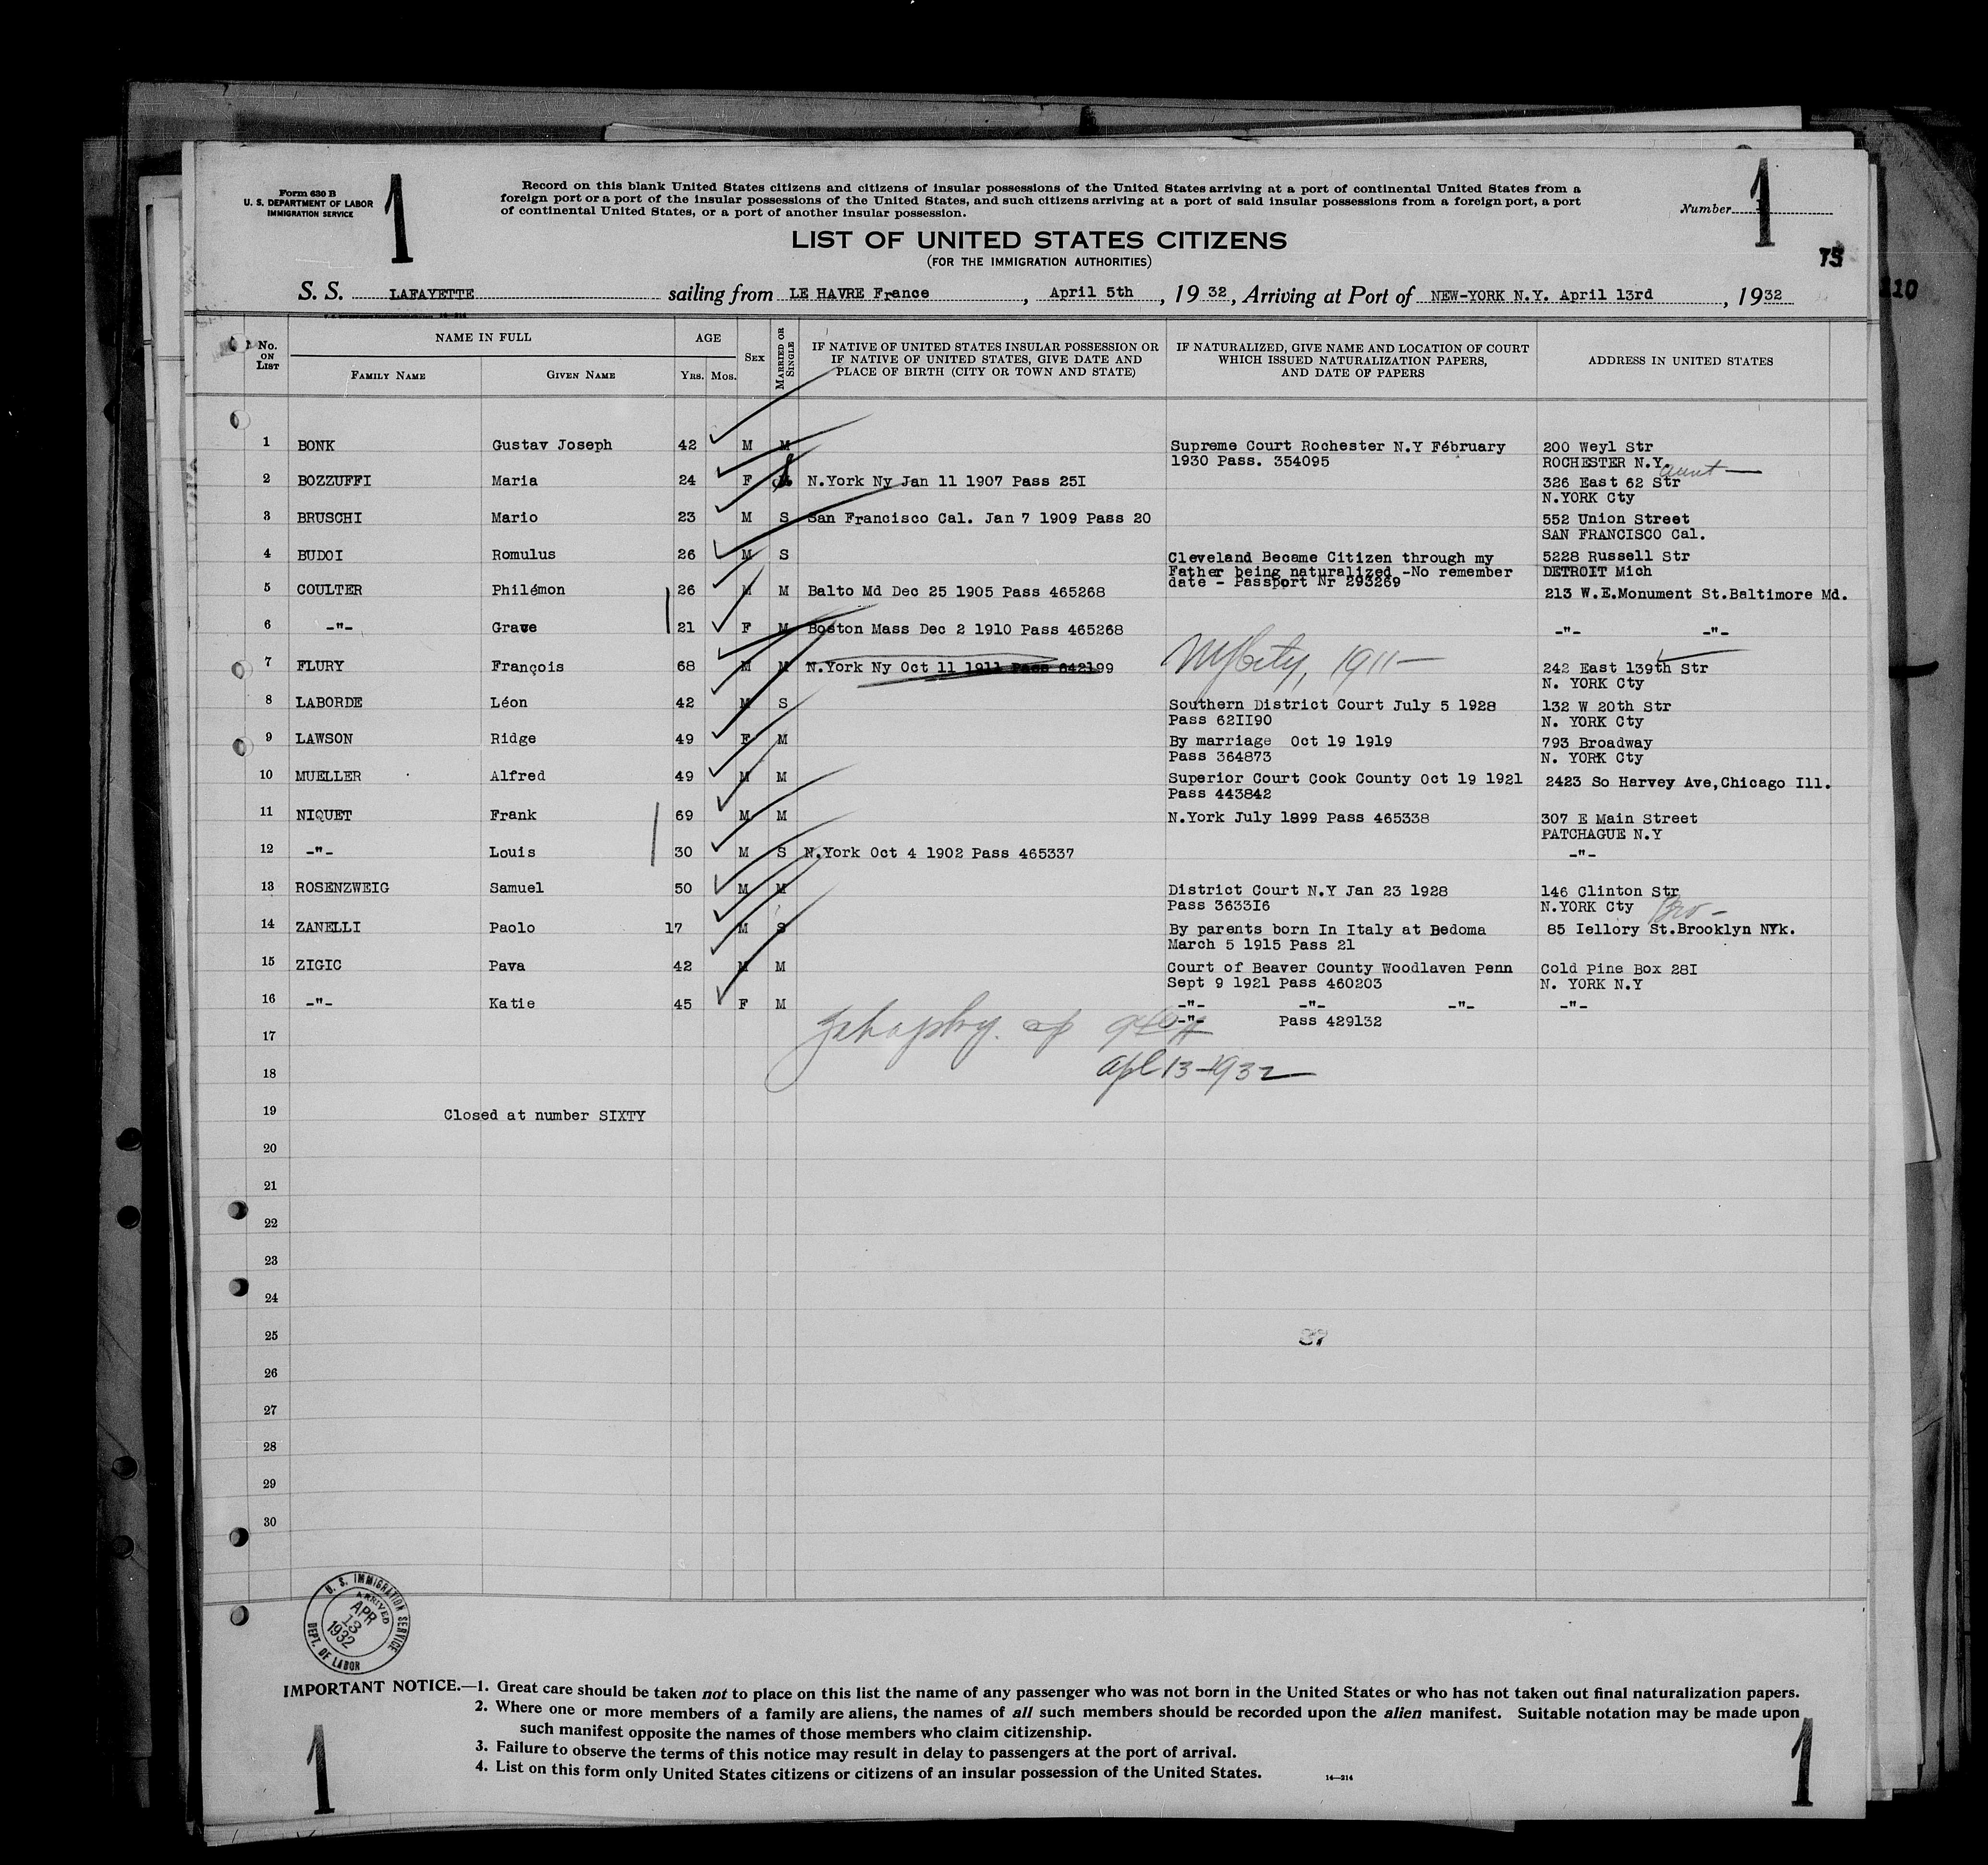 Form 630 B
U. S. DEPARTMENT OF LABOR
IMMIGRATION SERVICE
1
Record on this blank United States citizens and citizens of insular possessions of the United States arriving at a port of continental United States from a
foreign port or a port of the insular possessions of the United States, and such citizens arriving at a port of said insular possessions from a foreign port, a port
of continental United States, or a port of another insular possession.
Number 1
LIST OF UNITED STATES CITIZENS
(FOR THE IMMIGRATION AUTHORITIES)
75
110
S. S. LAFAYETTE sailing from LE HAVRE France, April 5th, 1932, Arriving at Port of NEW-YORK N.Y. April 13rd, 1932
No. ON LIST NAME IN FULL AGE SEX MARRIED OR SINGLE IF NATIVE OF UNITED STATES INSULAR POSSESSION OR IF NATIVE OF UNITED STATES, GIVE DATE AND PLACE OF BIRTH (CITY OR TOWN AND STATE) IF NATURALIZED, GIVE NAME AND LOCATION OF COURT WHICH ISSUED NATURALIZATION PAPERS, AND DATE OF PAPERS ADDRESS IN UNITED STATES
FAMILY NAME GIVEN NAME YRS. MOS.
1 BONK Gustav Joseph 42 M M Supreme Court Rochester N.Y Fébruary 200 Weyl Str
1930 Pass. 354095 ROCHESTER N.Y. aunt
2 BOZZUFFI Maria 24 F N.York Ny Jan 11 1907 Pass 25I 326 East 62 Str
N.YORK Cty
3 BRUSCHI Mario 23 M S San Francisco Cal. Jan 7 1909 Pass 20 552 Union Street
SAN FRANCISCO Cal.
4 BUDOI Romulus 26 M S Cleveland Became Citizen through my 5228 Russell Str
Father being naturalized -No remember DETROIT Mich
date - Passport Nr 293269
5 COULTER Philémon 26 M M Balto Md Dec 25 1905 Pass 465268 213 W.E.Monument St.Baltimore Md.
6 -"- Grave 21 F M Boston Mass Dec 2 1910 Pass 465268 -"- -"-
7 FLURY François 68 M M N.York Ny Oct 11 1911 Pass 642199 NY City, 1911 242 East 139th Str
N. YORK Cty
8 LABORDE Léon 42 M S Southern District Court July 5 1928 132 W 20th Str
Pass 62II90 N. YORK Cty
9 LAWSON Ridge 49 F M By marriage Oct 19 1919 793 Broadway
Pass 364873 N. YORK Cty
10 MUELLER Alfred 49 M M Superior Court Cook County Oct 19 1921 2423 So Harvey Ave,Chicago Ill.
Pass 443842
11 NIQUET Frank 69 M M N.York July 1899 Pass 465338 307 E Main Street
PATCHAGUE N.Y
12 -"- Louis 30 M S N.York Oct 4 1902 Pass 465337 -"-
13 ROSENZWEIG Samuel 50 M M District Court N.Y Jan 23 1928 146 Clinton Str
Pass 3633I6 N.YORK Cty Bro -
14 ZANELLI Paolo 17 M S By parents born In Italy at Bedoma 85 Iellory St.Brooklyn NYk.
March 5 1915 Pass 21
15 ZIGIC Pava 42 M M Court of Beaver County Woodlaven Penn Cold Pine Box 28I
Sept 9 1921 Pass 460203 N. YORK N.Y
16 -"- Katie 45 F M -"- -"- -"- -"-
-"- Pass 429132
17
18 Apl 13-1932
19 Closed at number SIXTY
20
21
22
23
24
25 37
26
27
28
29
30
U. S. IMMIGRATION SERVICE
ARRIVED
APR
13
1932
DEPT. OF LABOR
IMPORTANT NOTICE.—1. Great care should be taken not to place on this list the name of any passenger who was not born in the United States or who has not taken out final naturalization papers.
2. Where one or more members of a family are aliens, the names of all such members should be recorded upon the alien manifest. Suitable notation may be made upon
such manifest opposite the names of those members who claim citizenship.
3. Failure to observe the terms of this notice may result in delay to passengers at the port of arrival.
4. List on this form only United States citizens or citizens of an insular possession of the United States.
14—214
1
1